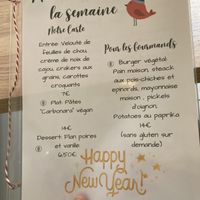 la semaine
Notre Carte
Entrée: Velouté de
feuilles de chou,
crème de noix de
cajou, crakers aux
grains, carottes
croquants
7€
Plat: Pâtes
"Carbonara" végan
14€
Dessert: Flan poires
et vanille
9,50€
Pour les Gourmands
Burger végétal
Pain maison, steack
aux pois-chiches et
épinards, mayonnaise
maison, pickels
d'oignon,
Potatoes au paprika
14€
(sans gluten sur
demande)
Happy
New Year!